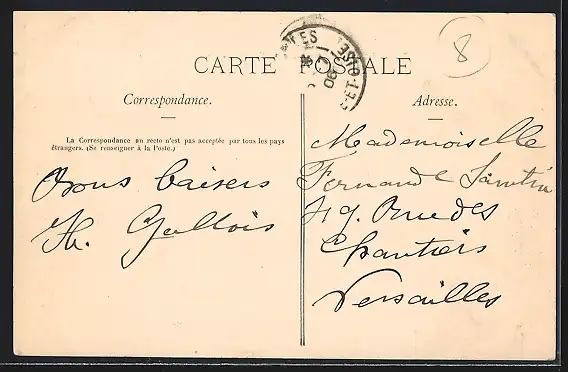 CARTE POSTALE
8
Correspondance.
Adresse.
La Correspondance au recto n'est pas acceptée par tous les pays
étrangers. (Se renseigner à la Poste.)
baisers
Gallois
Mademoiselle
Fernande
49. Rue des
Chantiers
Versailles
ET-OISE
06